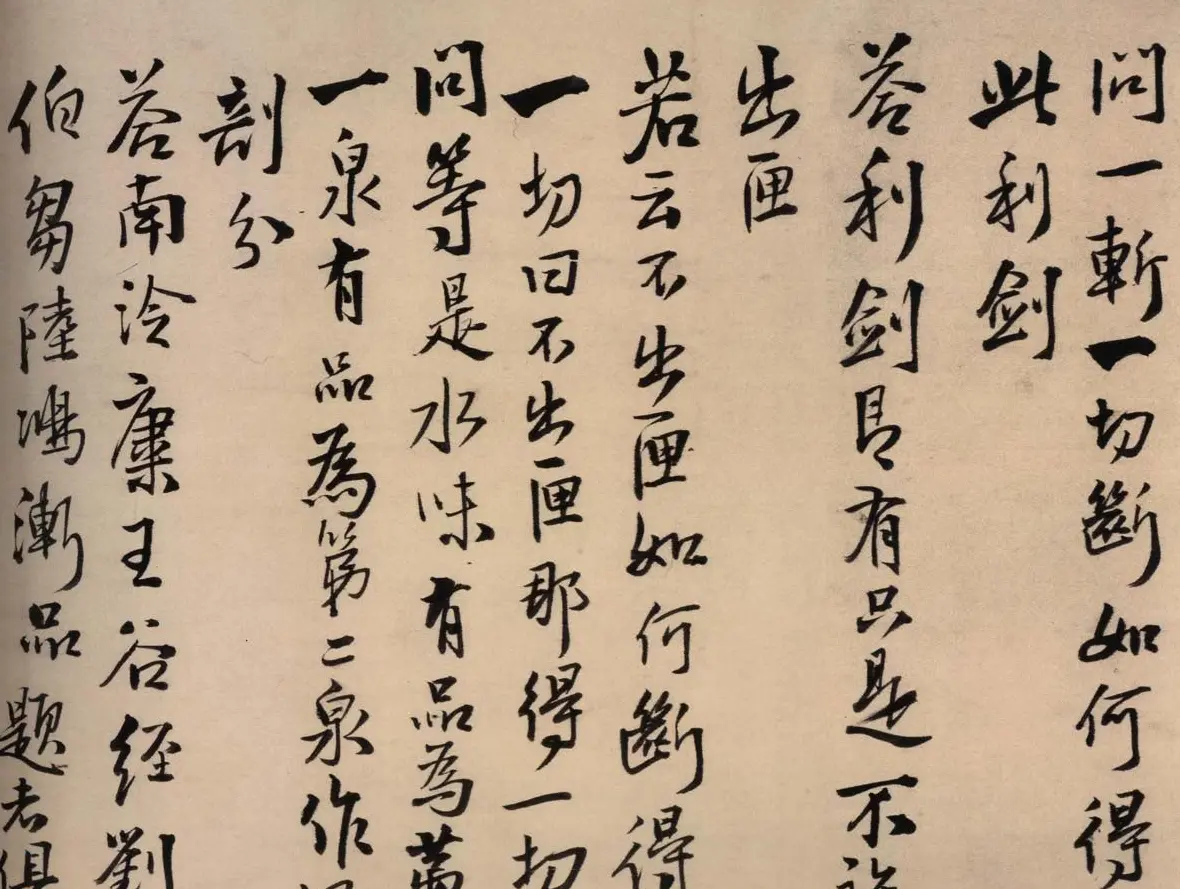 問一斬一切斷如何得
此利劍
答利劍自有只是不許
出匣
若云不出匣如何斷得
一切曰不出匣那得一切
問等是水味有品為第
一泉有品為第二泉作
剖分
答南泠康王谷經劉
伯芻陸鴻漸品題者俱